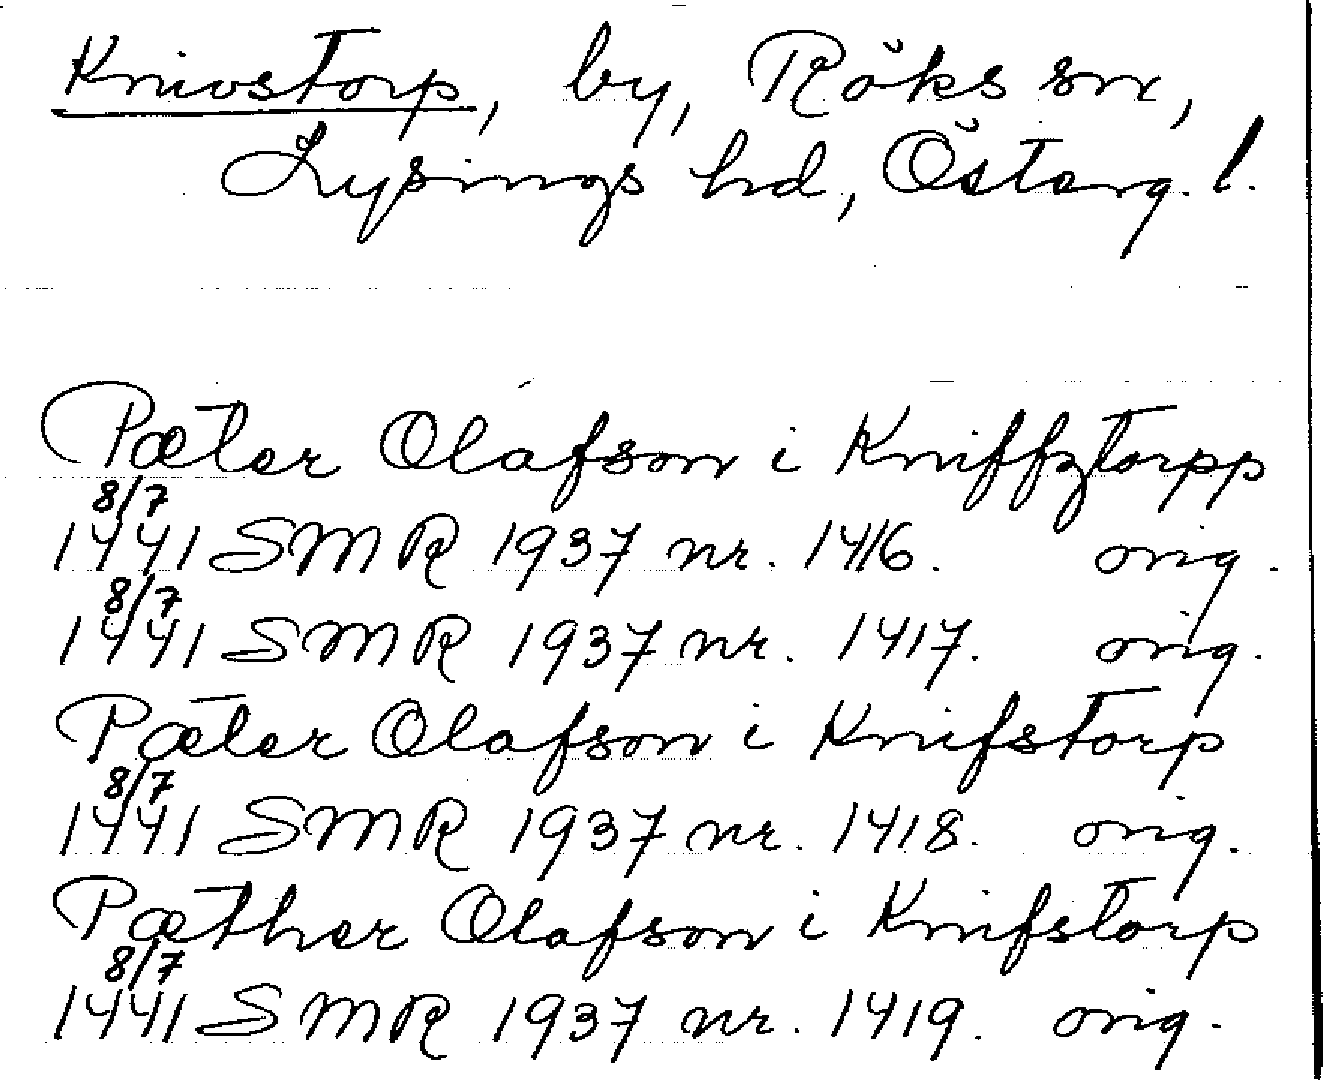 Knivstorp, by, Röks sn,
Lysings hd, Österg. l.
Pæter Olafson i Kniffztorpp
8/7
1441 SMR 1937 nr. 1416. orig.
8/7
1441 SMR 1937 nr. 1417. orig.
Pæter Olafson i Knifstorp
8/7
1441 SMR 1937 nr. 1418. orig.
Pæther Olafson i Knifstorp
8/7
1441 SMR 1937 nr. 1419. orig.